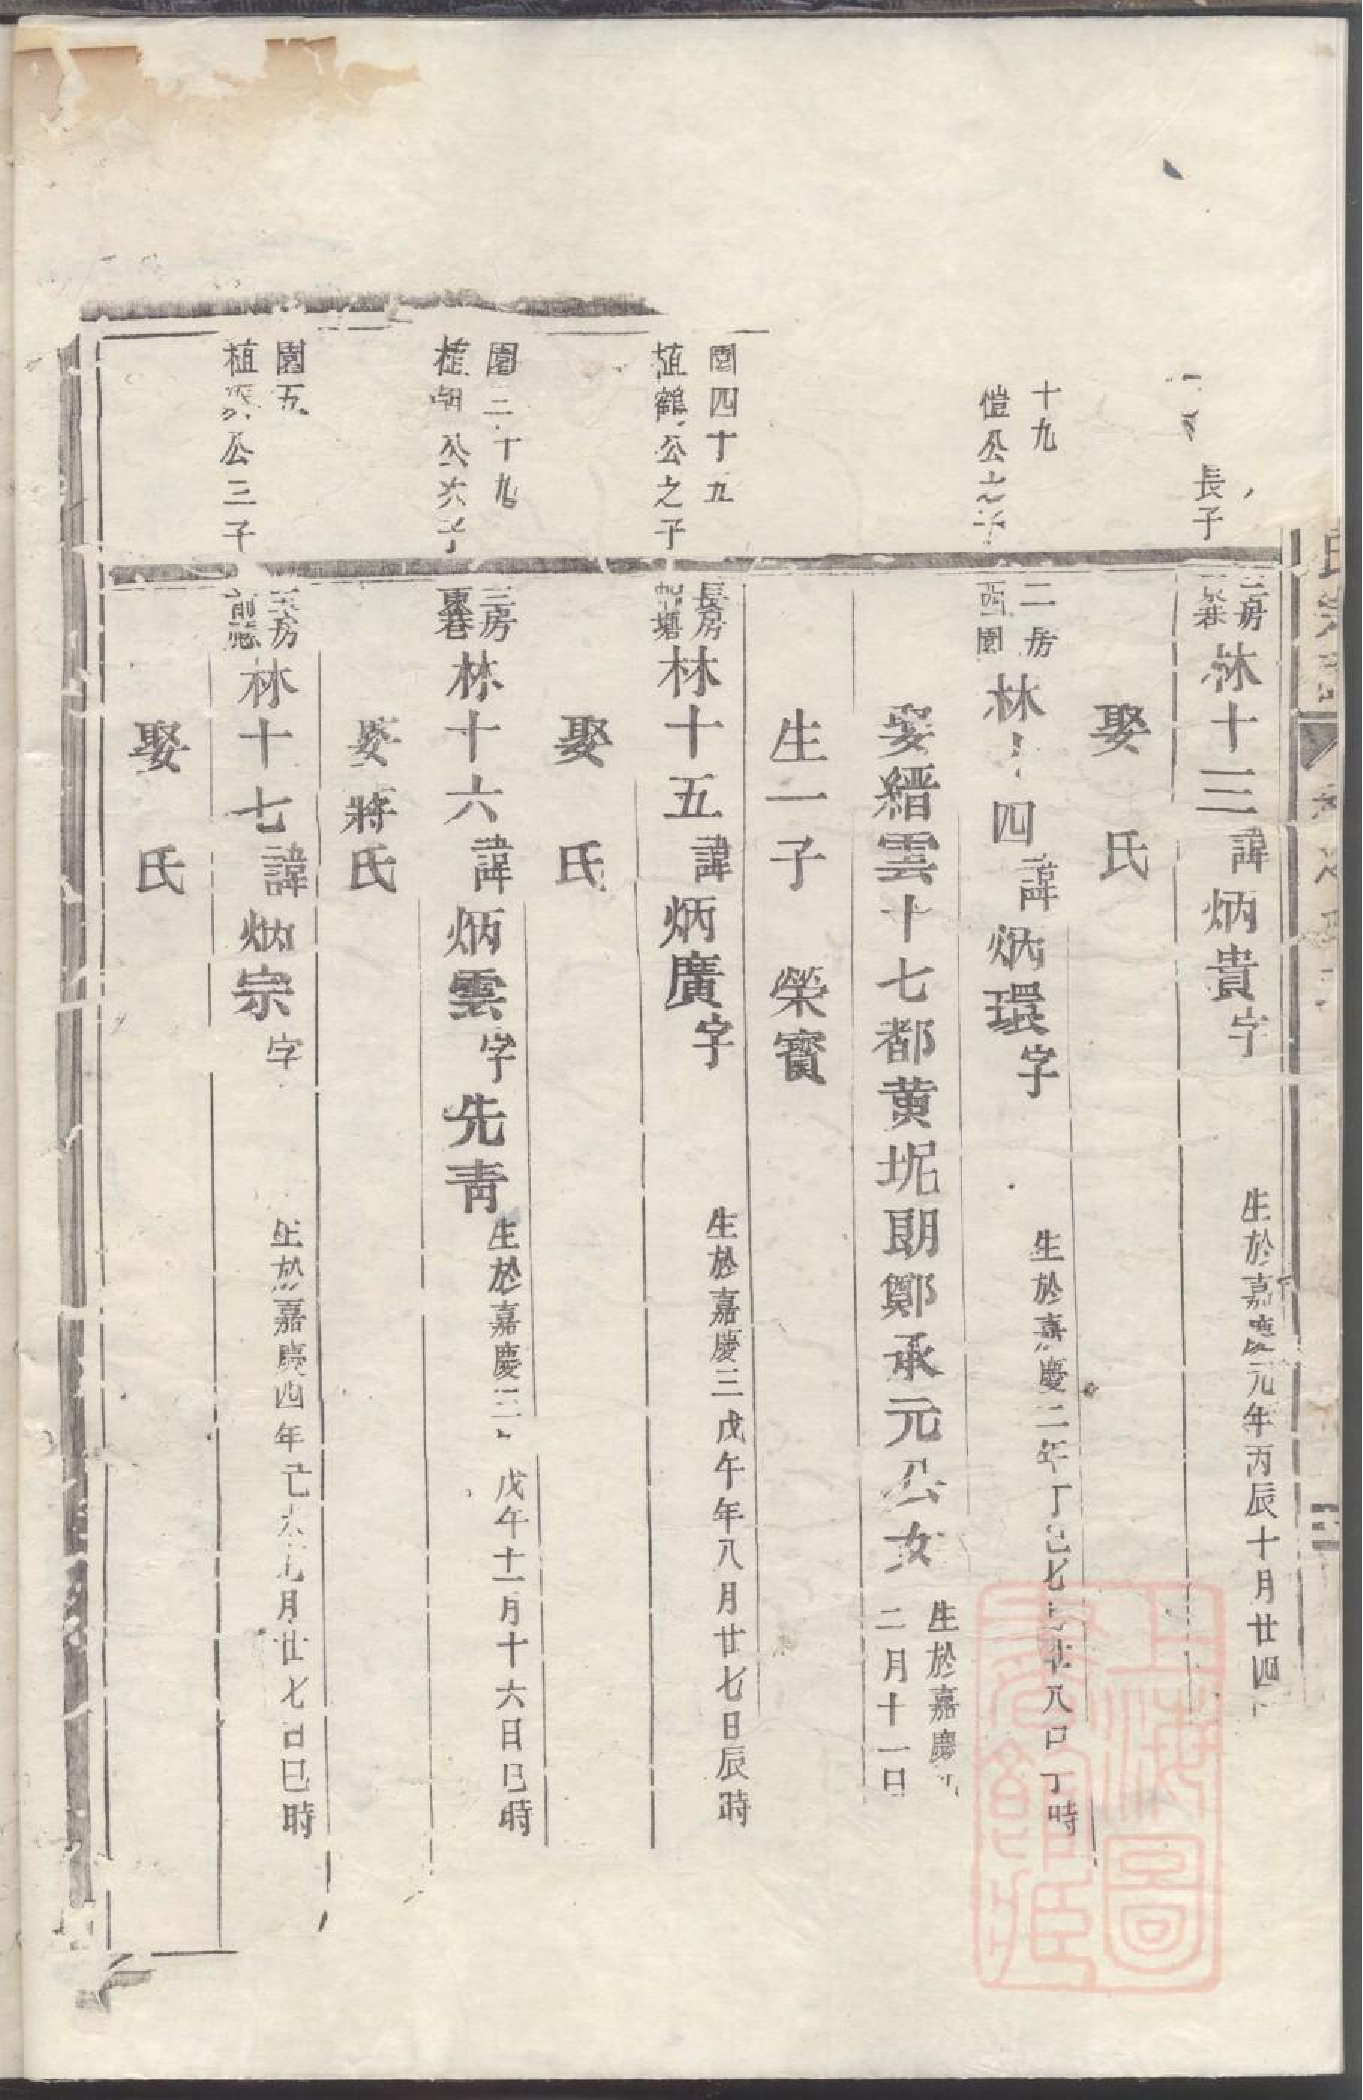 長子
三房
林十三諱炳貴字
生於嘉慶元年丙辰十月廿四
娶 氏
十九
愷公之子
二房
西園
林十四諱炳環字
生於嘉慶二年丁巳七月廿八日 時
娶縉雲十七都黄坭朗鄭承元公女
生於嘉慶
二月十一日
生一子 榮寶
園四十五
植鶴公之子
長房
塘
林十五諱炳廣字
生於嘉慶三戊午年八月廿七日辰時
娶 氏
園三十九
植朝公六子
三房
東巷
林十六諱炳雲字先青
生於嘉慶三 戊午十一月十六日巳時
娶蔣氏
園五
植 公三子
房
前
林十七諱炳宗字
生於嘉慶四年己未九月廿七日巳時
娶 氏
上海圖
書館藏